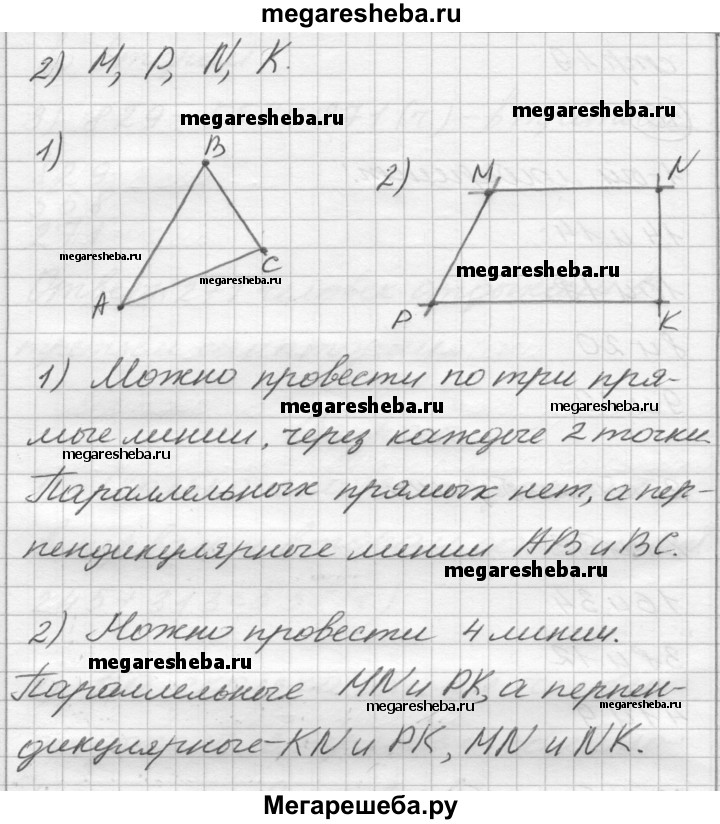 megaresheba.ru
2) М, Р, N, К.
megaresheba.ru
megaresheba.ru
1)
B
2)
M
N
megaresheba.ru
C
megaresheba.ru
megaresheba.ru
A
P
K
1) Можно провести по три пря-
megaresheba.ru
megaresheba.ru
мые линии, через каждые 2 точки.
megaresheba.ru
Параллельных прямых нет, а пер-
пендикулярные линии AB и BC.
megaresheba.ru
2) Можно провести 4 линии.
megaresheba.ru
Параллельные MN и PK, а перпен-
megaresheba.ru
megaresheba.ru
дикулярные - KN и PK, MN и NK.
Мегарешеба.ру